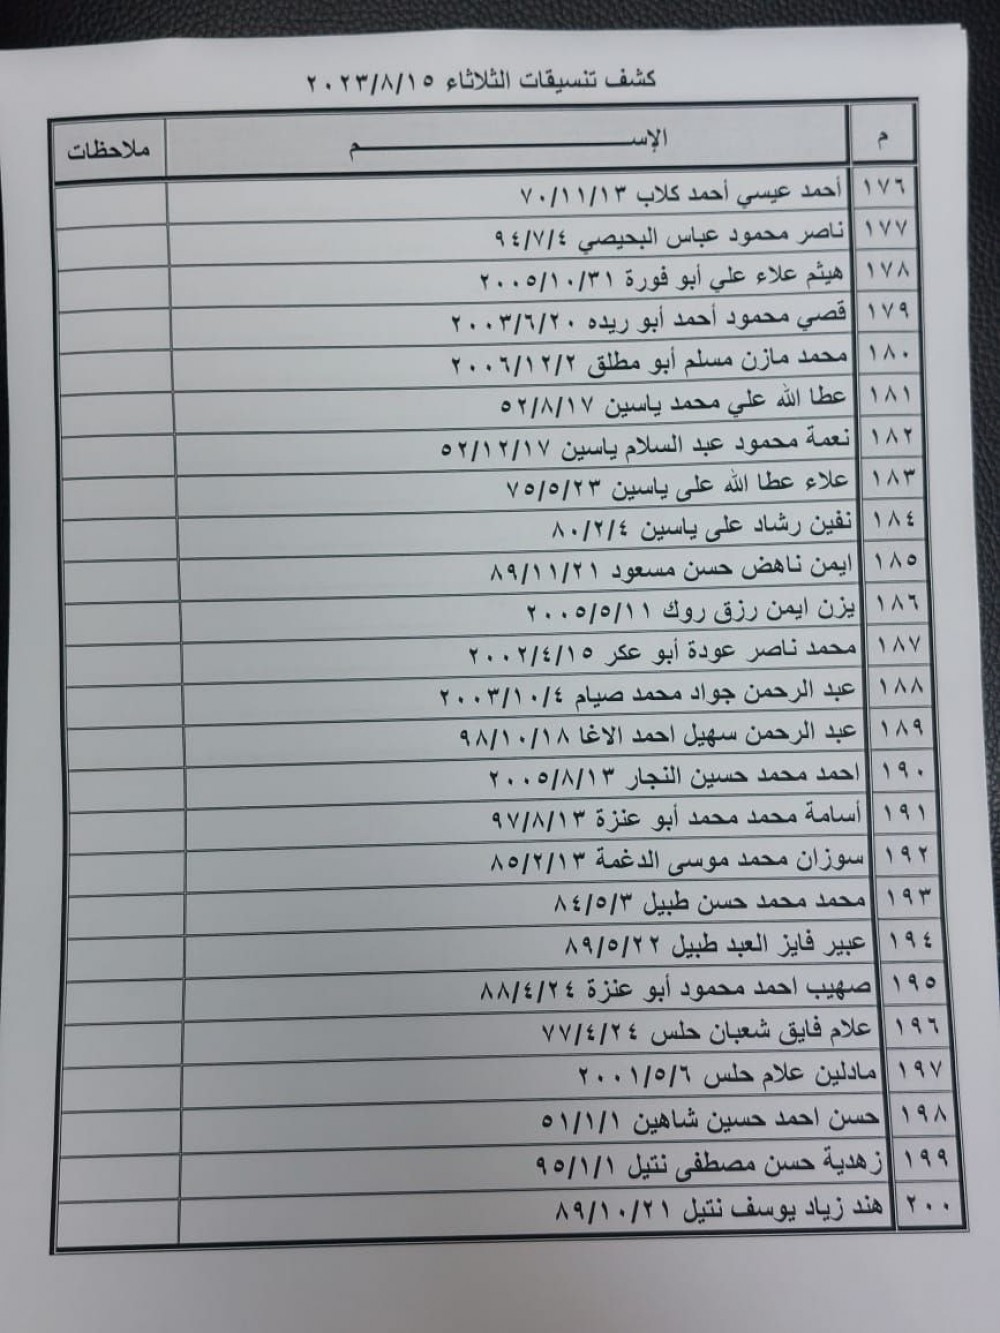 كشف تنسيقات الثلاثاء ٢٠٢٣/٨/١٥
م الإســـــــــــــــــــــــم ملاحظات
١٧٦ أحمد عيسي أحمد كلاب ٧٠/١١/١٣
١٧٧ ناصر محمود عباس البحيصي ٩٤/٧/٤
١٧٨ هيثم علاء علي أبو فورة ٢٠٠٥/١٠/٣١
١٧٩ قصي محمود أحمد أبو ريده ٢٠٠٣/٦/٢٠
١٨٠ محمد مازن مسلم أبو مطلق ٢٠٠٦/١٢/٢
١٨١ عطا الله علي محمد ياسين ٥٢/٨/١٧
١٨٢ نعمة محمود عبد السلام ياسين ٥٢/١٢/١٧
١٨٣ علاء عطا الله على ياسين ٧٥/٥/٢٣
١٨٤ نفين رشاد على ياسين ٨٠/٢/٤
١٨٥ ايمن ناهض حسن مسعود ٨٩/١١/٢١
١٨٦ يزن ايمن رزق روك ٢٠٠٥/٥/١١
١٨٧ محمد ناصر عودة أبو عكر ٢٠٠٢/٤/١٥
١٨٨ عبد الرحمن جواد محمد صيام ٢٠٠٣/١٠/٤
١٨٩ عبد الرحمن سهيل احمد الاغا ٩٨/١٠/١٨
١٩٠ احمد محمد حسين النجار ٢٠٠٥/٨/١٣
١٩١ أسامة محمد محمد أبو عنزة ٩٧/٨/١٣
١٩٢ سوزان محمد موسى الدغمة ٨٥/٢/١٣
١٩٣ محمد محمد حسن طبيل ٨٤/٥/٣
١٩٤ عبير فايز العبد طبيل ٨٩/٥/٢٢
١٩٥ صهيب احمد محمود أبو عنزة ٨٨/٤/٢٤
١٩٦ علام فايق شعبان حلس ٧٧/٤/٢٤
١٩٧ مادلين علام حلس ٢٠٠١/٥/٦
١٩٨ حسن احمد حسين شاهين ٥١/١/١
١٩٩ زهدية حسن مصطفى نتيل ٩٥/١/١
٢٠٠ هند زياد يوسف نتيل ٨٩/١٠/٢١